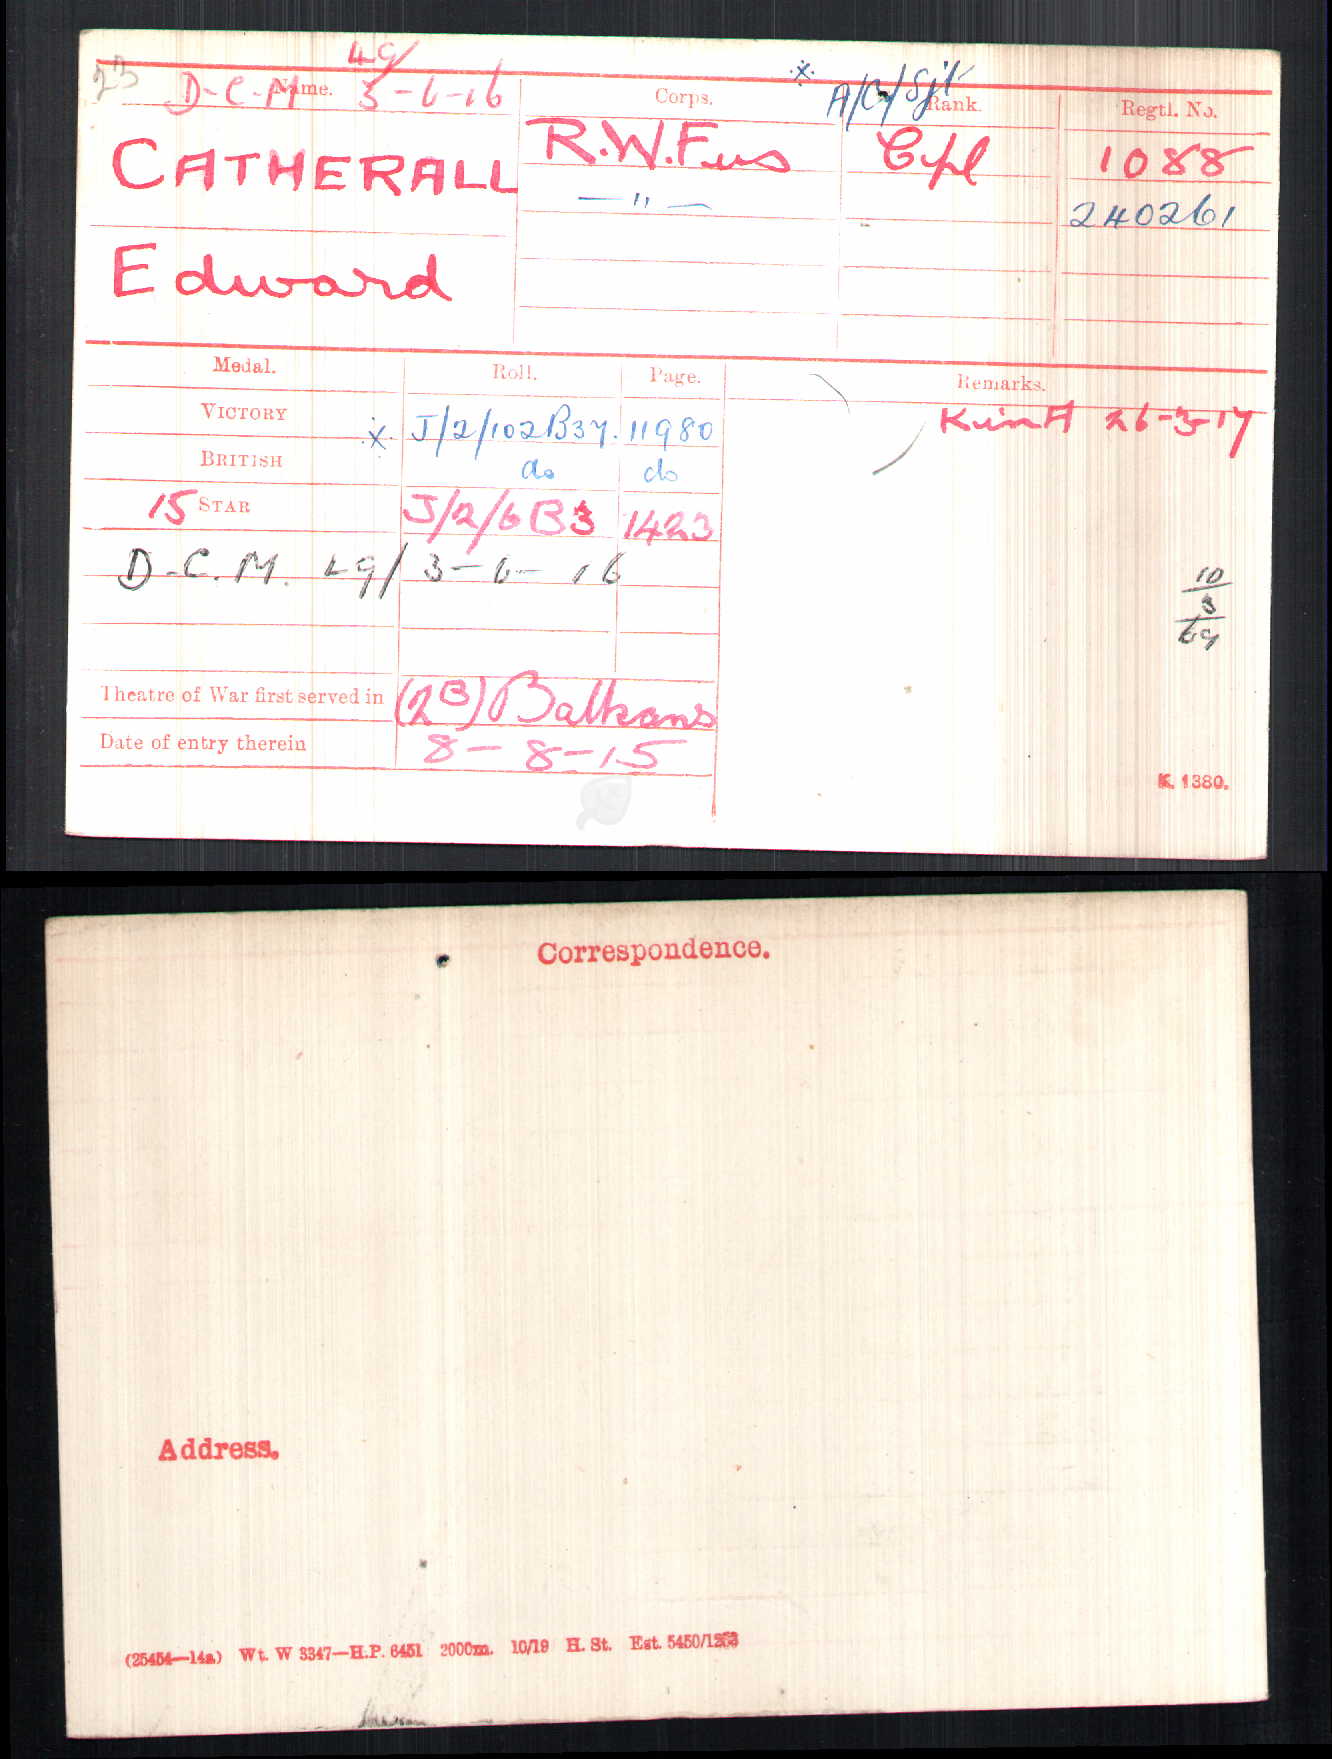 23 D-C-M LG/ 3-6-16
Name. Corps. Rank. Regtl. No.
* A/C/Sjt
CATHERALL R.W.Fus Cpl 1088
— " — 240261
Edward
Medal. Roll. Page. Remarks.
VICTORY * J/2/102B37. 11980 K in A 26-3-17
BRITISH do do
15 STAR J/2/6B3 1423
D.C.M. LG/ 3-6-16
10
3
69
Theatre of War first served in (2B) Balkans
Date of entry therein 8-8-15
K. 1380.
Correspondence.
Address.
(25454—14a) Wt. W 3347—H.P. 6451 2000m. 10/19 H. St. Est. 5450/1253